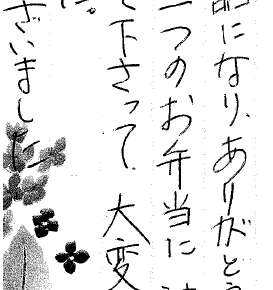 になり、ありがとう
一つのお弁当に
て下さって、大変
た。
ざいました